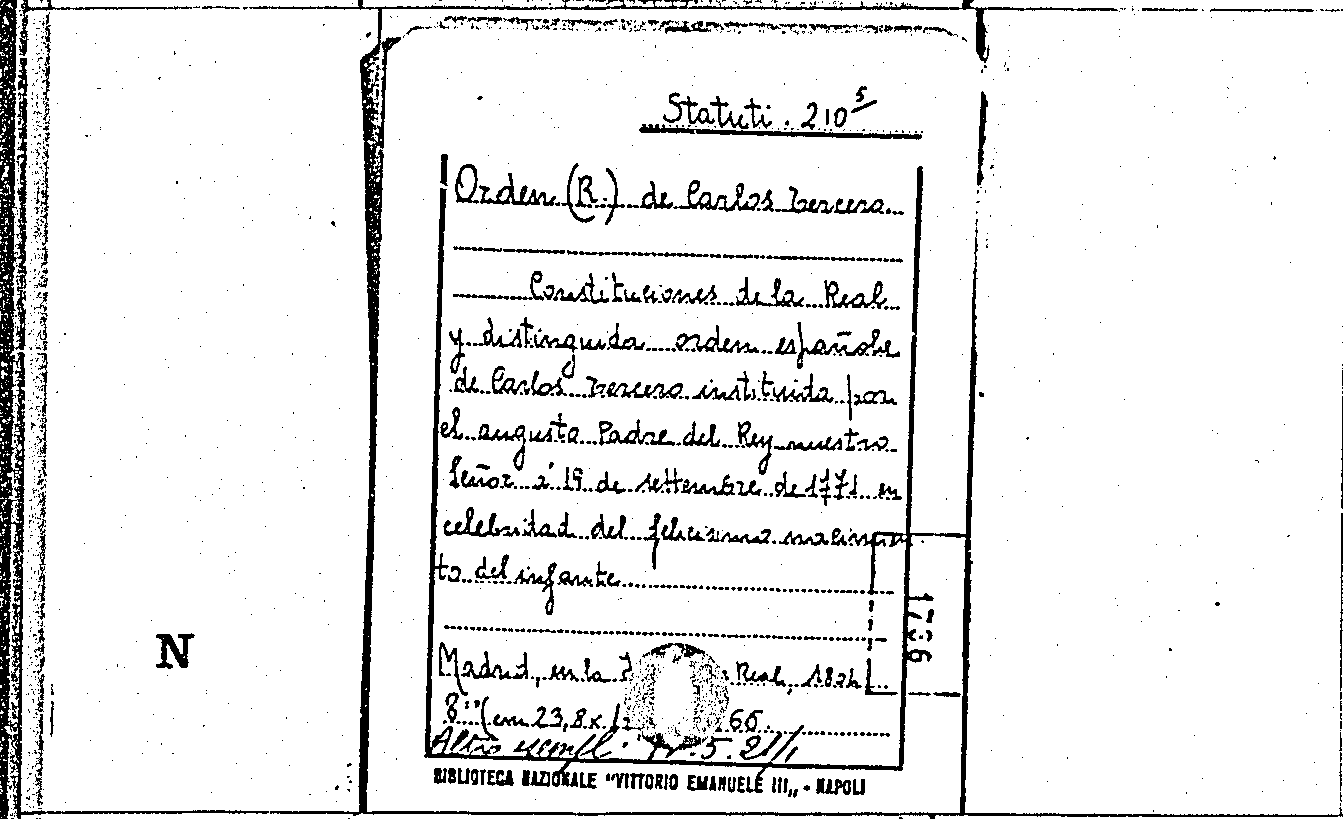 Statuti. 210 5/
Orden (R.) de Carlos tercero
Constituciones de la Real
y distinguida orden española
de Carlos tercero instituida por
el augusto Padre del Rey nuestro
Señor á 19 de settembre de 1771 en
celebridad del felicisimo nacimien
to del infante
1736
N
Madrid, en la Real, 1804
8° (cm 23,8 x 66
Altro esempl:
BIBLIOTECA NAZIONALE "VITTORIO EMANUELE III„ - NAPOLI